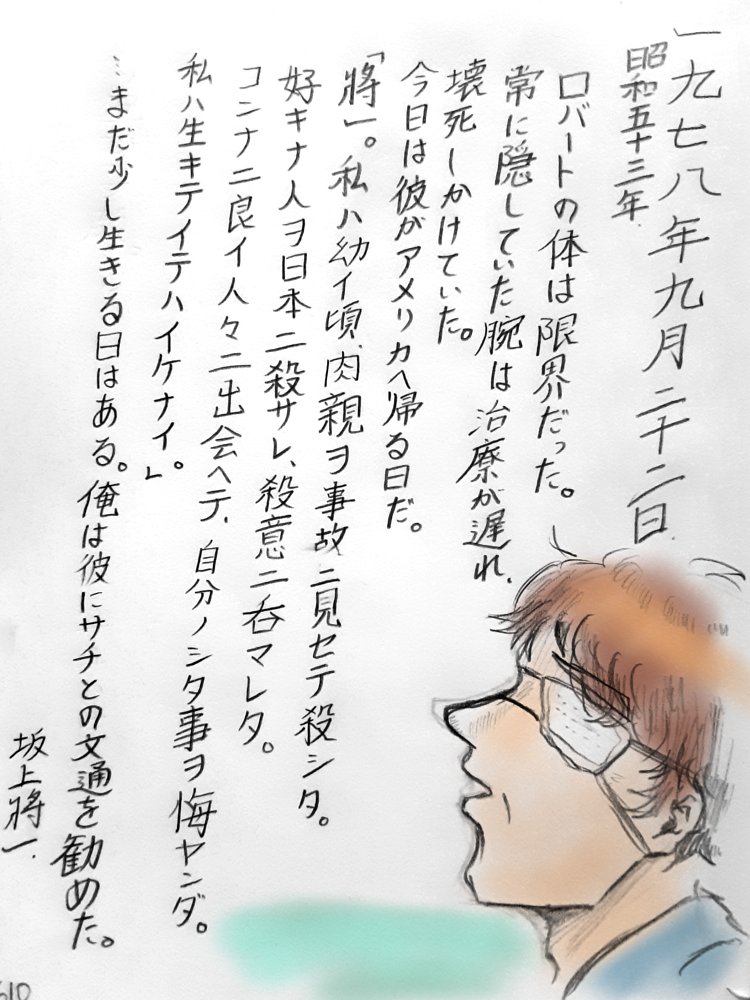 一九七八年九月二十二日
昭和五十三年
ロバートの体は限界だった。
常に隠していた腕は治療が遅れ、
壊死しかけていた。
今日は彼がアメリカへ帰る日だ。
「將一。私ハ幼イ頃、肉親ヲ事故ニ見セテ殺シタ。
好キナ人ヲ日本ニ殺サレ、殺意ニ呑マレタ。
コンナニ良イ人々ニ出会ヘテ、自分ノシタ事ヲ悔ヤンダ。
私ハ生キテイテハイケナイ。」
…まだ少し生きる日はある。俺は彼にサチとの文通を勧めた。
坂上將一.